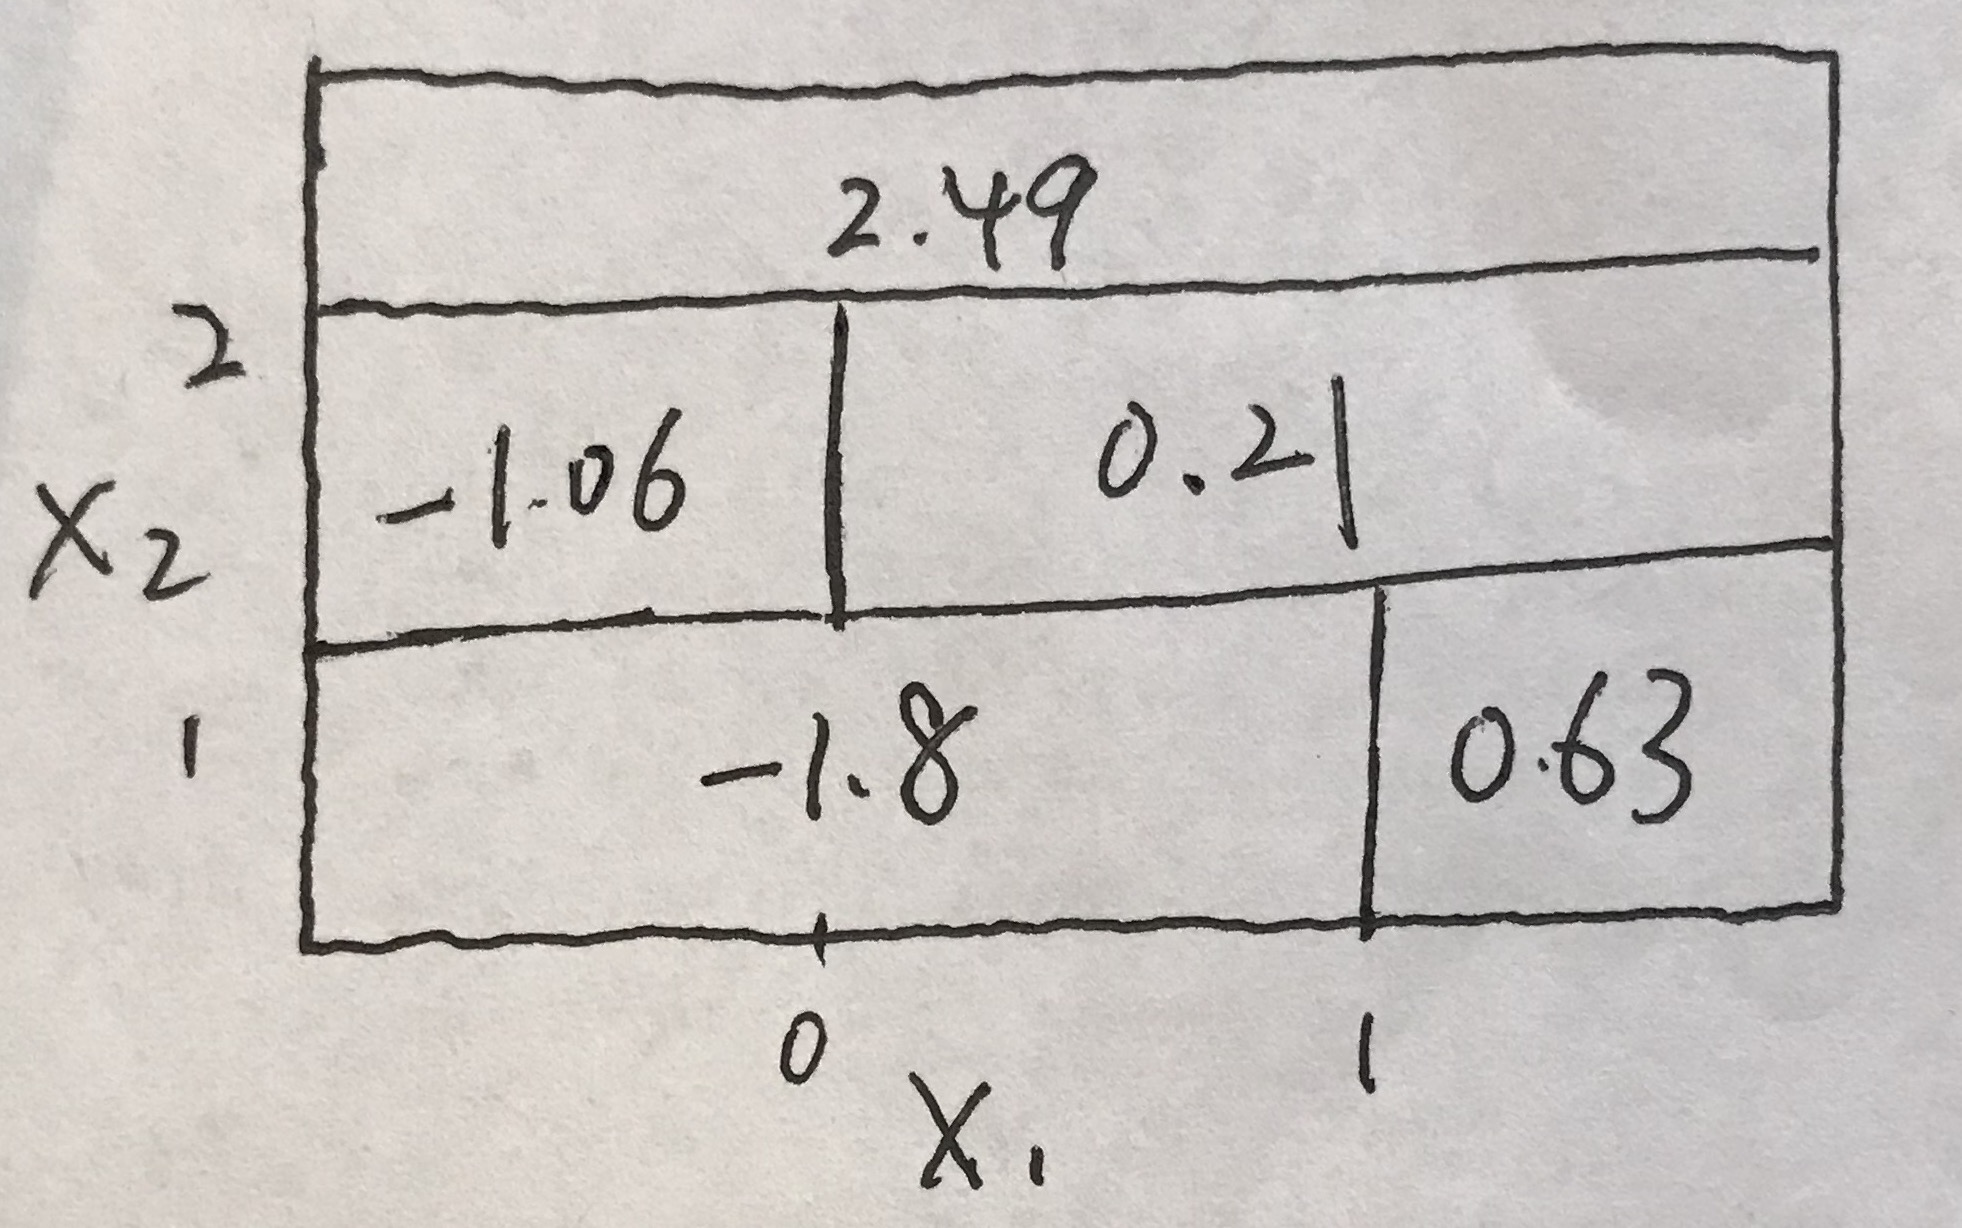 2.49
2
-1.06 0.21
X2
1
-1.8 0.63
0 1
X1